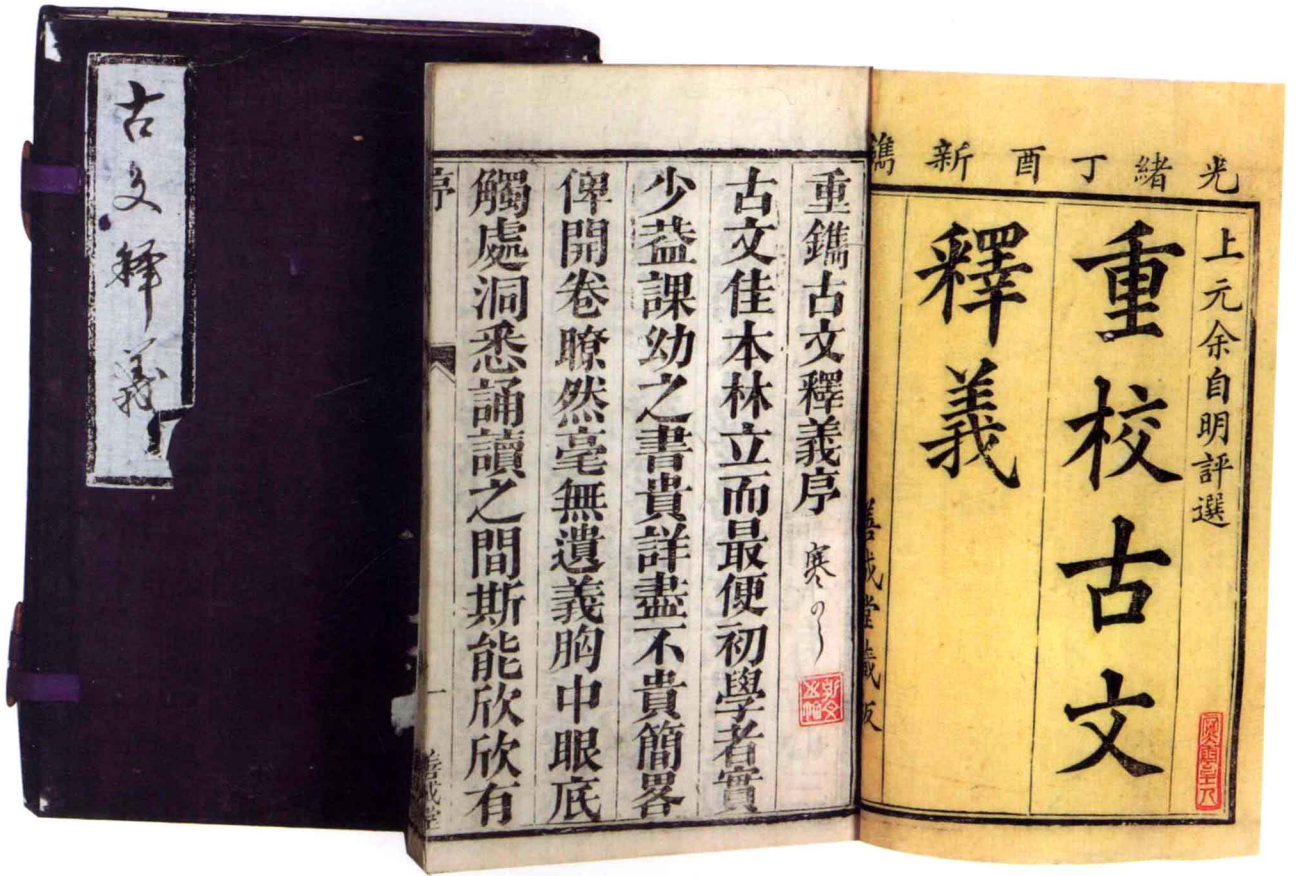 古文释義
光緒丁酉新鐫
上元余自明評選
重校古文
釋義
善成堂藏板
重鐫古文釋義序
古文佳本林立而最便初學者實
少葢課幼之書貴詳盡不貴簡畧
俾開卷瞭然毫無遺義胸中眼底
觸處洞悉誦讀之間斯能欣欣有
序
一
善成堂